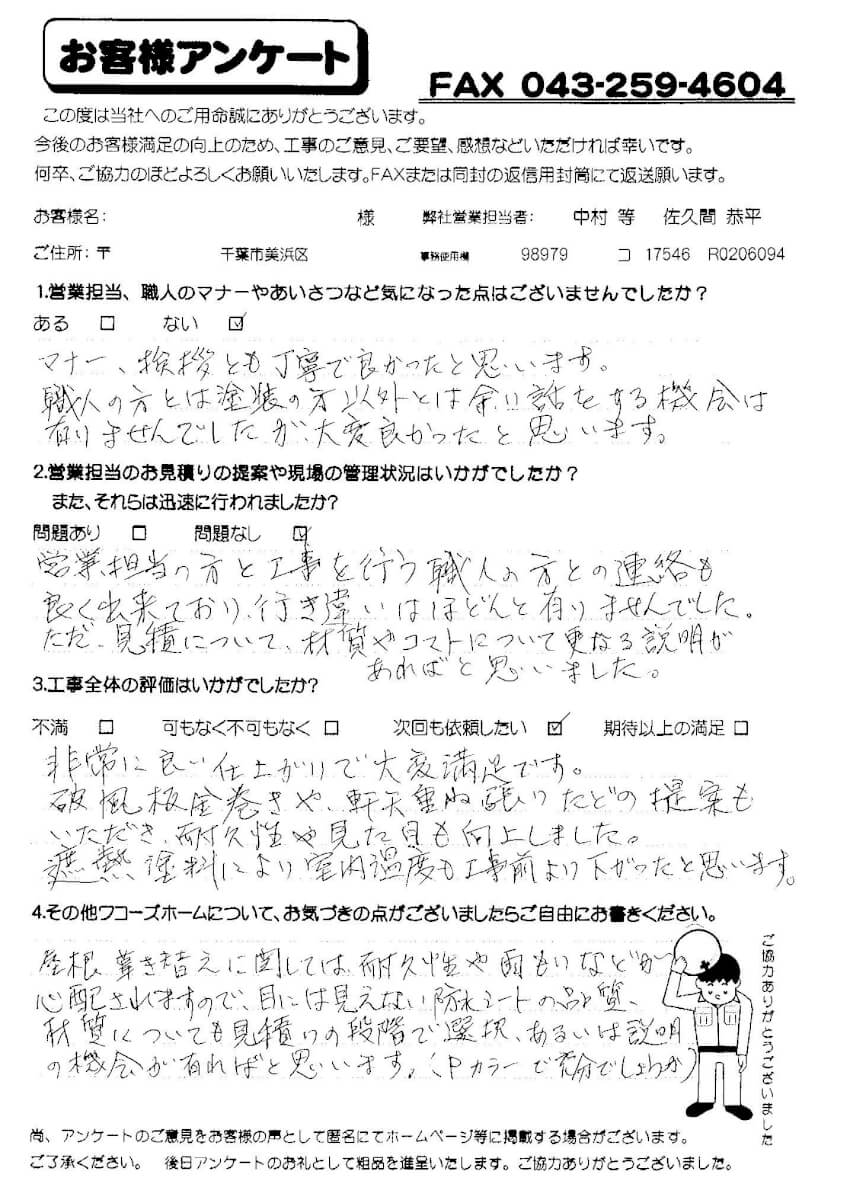 お客様アンケート
FAX 043-259-4604
この度は当社へのご用命誠にありがとうございます。
今後のお客様満足の向上のため、工事のご意見、ご要望、感想などいただければ幸いです。
何卒、ご協力のほどよろしくお願いいたします。FAXまたは同封の返信用封筒にて返送願います。
お客様名: 様 弊社営業担当者: 中村 等 佐久間 恭平
ご住所:〒 千葉市美浜区 事務使用欄 98979 コ 17546 R0206094
1.営業担当、職人のマナーやあいさつなど気になった点はございませんでしたか?
ある □ ない ☑
マナー、挨拶とも丁寧で良かったと思います。
職人の方とは塗装の方以外とは余り話をする機会は
有りませんでしたが、大変良かったと思います。
2.営業担当のお見積りの提案や現場の管理状況はいかがでしたか?
また、それらは迅速に行われましたか?
問題あり □ 問題なし ☑
営業担当の方と工事を行う職人の方との連絡も
良く出来ており、行き違いはほどんと有りませんでした。
ただ、見積について、材質やコストについて更なる説明が
あればと思いました。
3.工事全体の評価はいかがでしたか?
不満 □ 可もなく不可もなく □ 次回も依頼したい ☑ 期待以上の満足 □
非常に良い仕上がりで大変満足です。
破風板金巻きや、軒天重ね張りなどの提案も
いただき、耐久性や見た目も向上しました。
遮熱塗料により室内温度も工事前より下がったと思います。
4.その他ワコーズホームについて、お気づきの点がございましたらご自由にお書きください。
屋根葺き替えに関しては、耐久性や雨もりなどが
心配されますので、目には見えない防水シートの品質、
材質についても見積りの段階で選択、あるいは説明
の機会が有ればと思います。(Pカラーで充分でしょうか)
ご協力ありがとうございました
尚、アンケートのご意見をお客様の声として匿名にてホームページ等に掲載する場合がございます。
ご了承ください。 後日アンケートのお礼として粗品を進呈いたします。ご協力ありがとうございました。